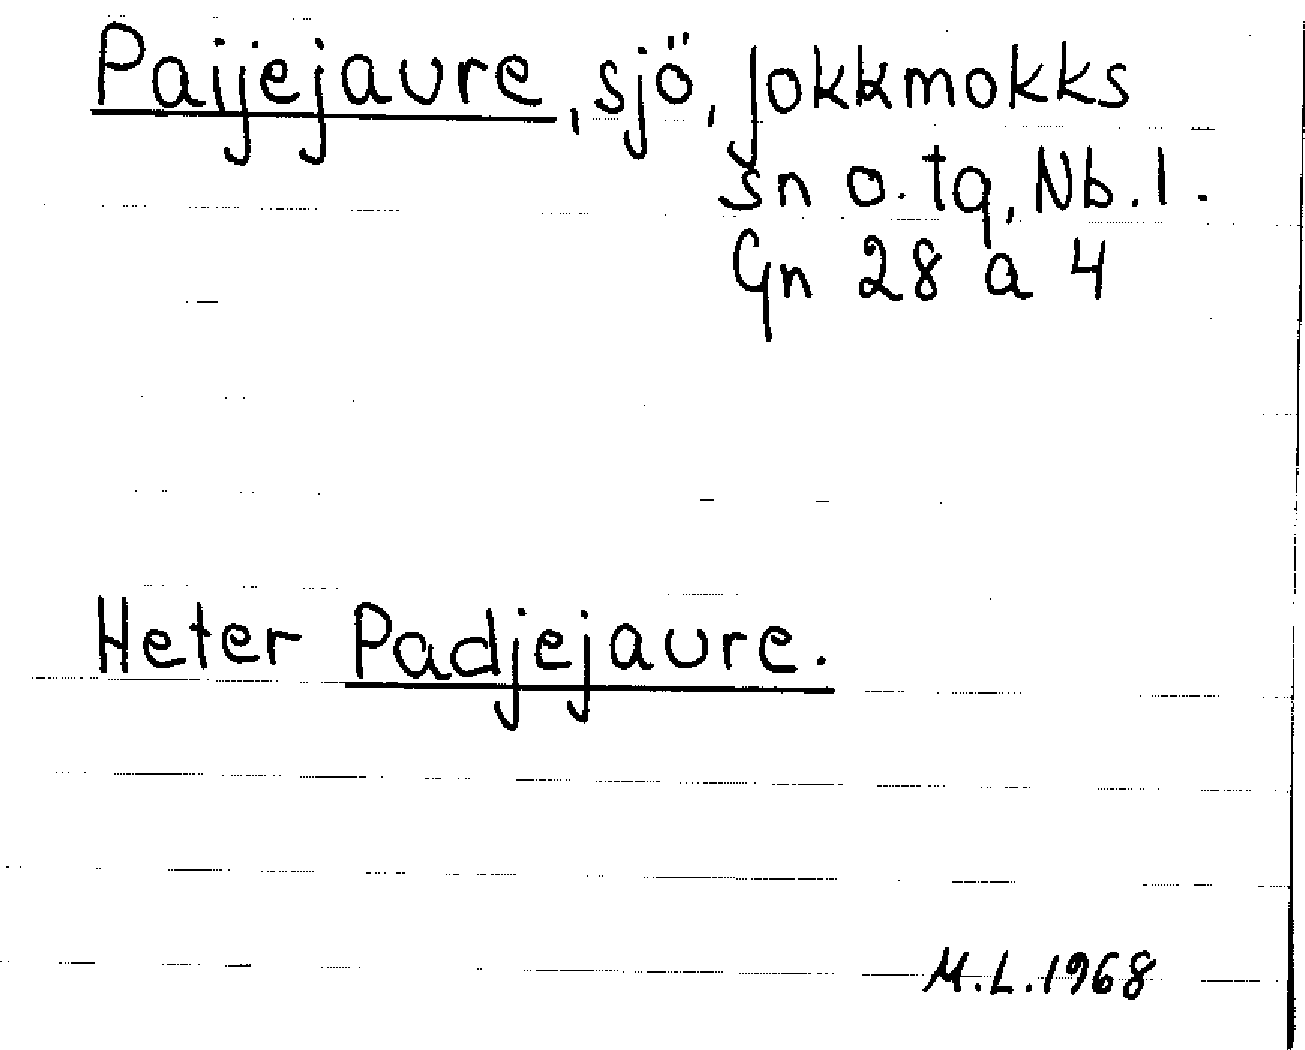 Paijejaure, sjö, Jokkmokks
sn o. tg, Nb. l.
Gn 28 a 4
Heter Padjejaure.
M.L. 1968